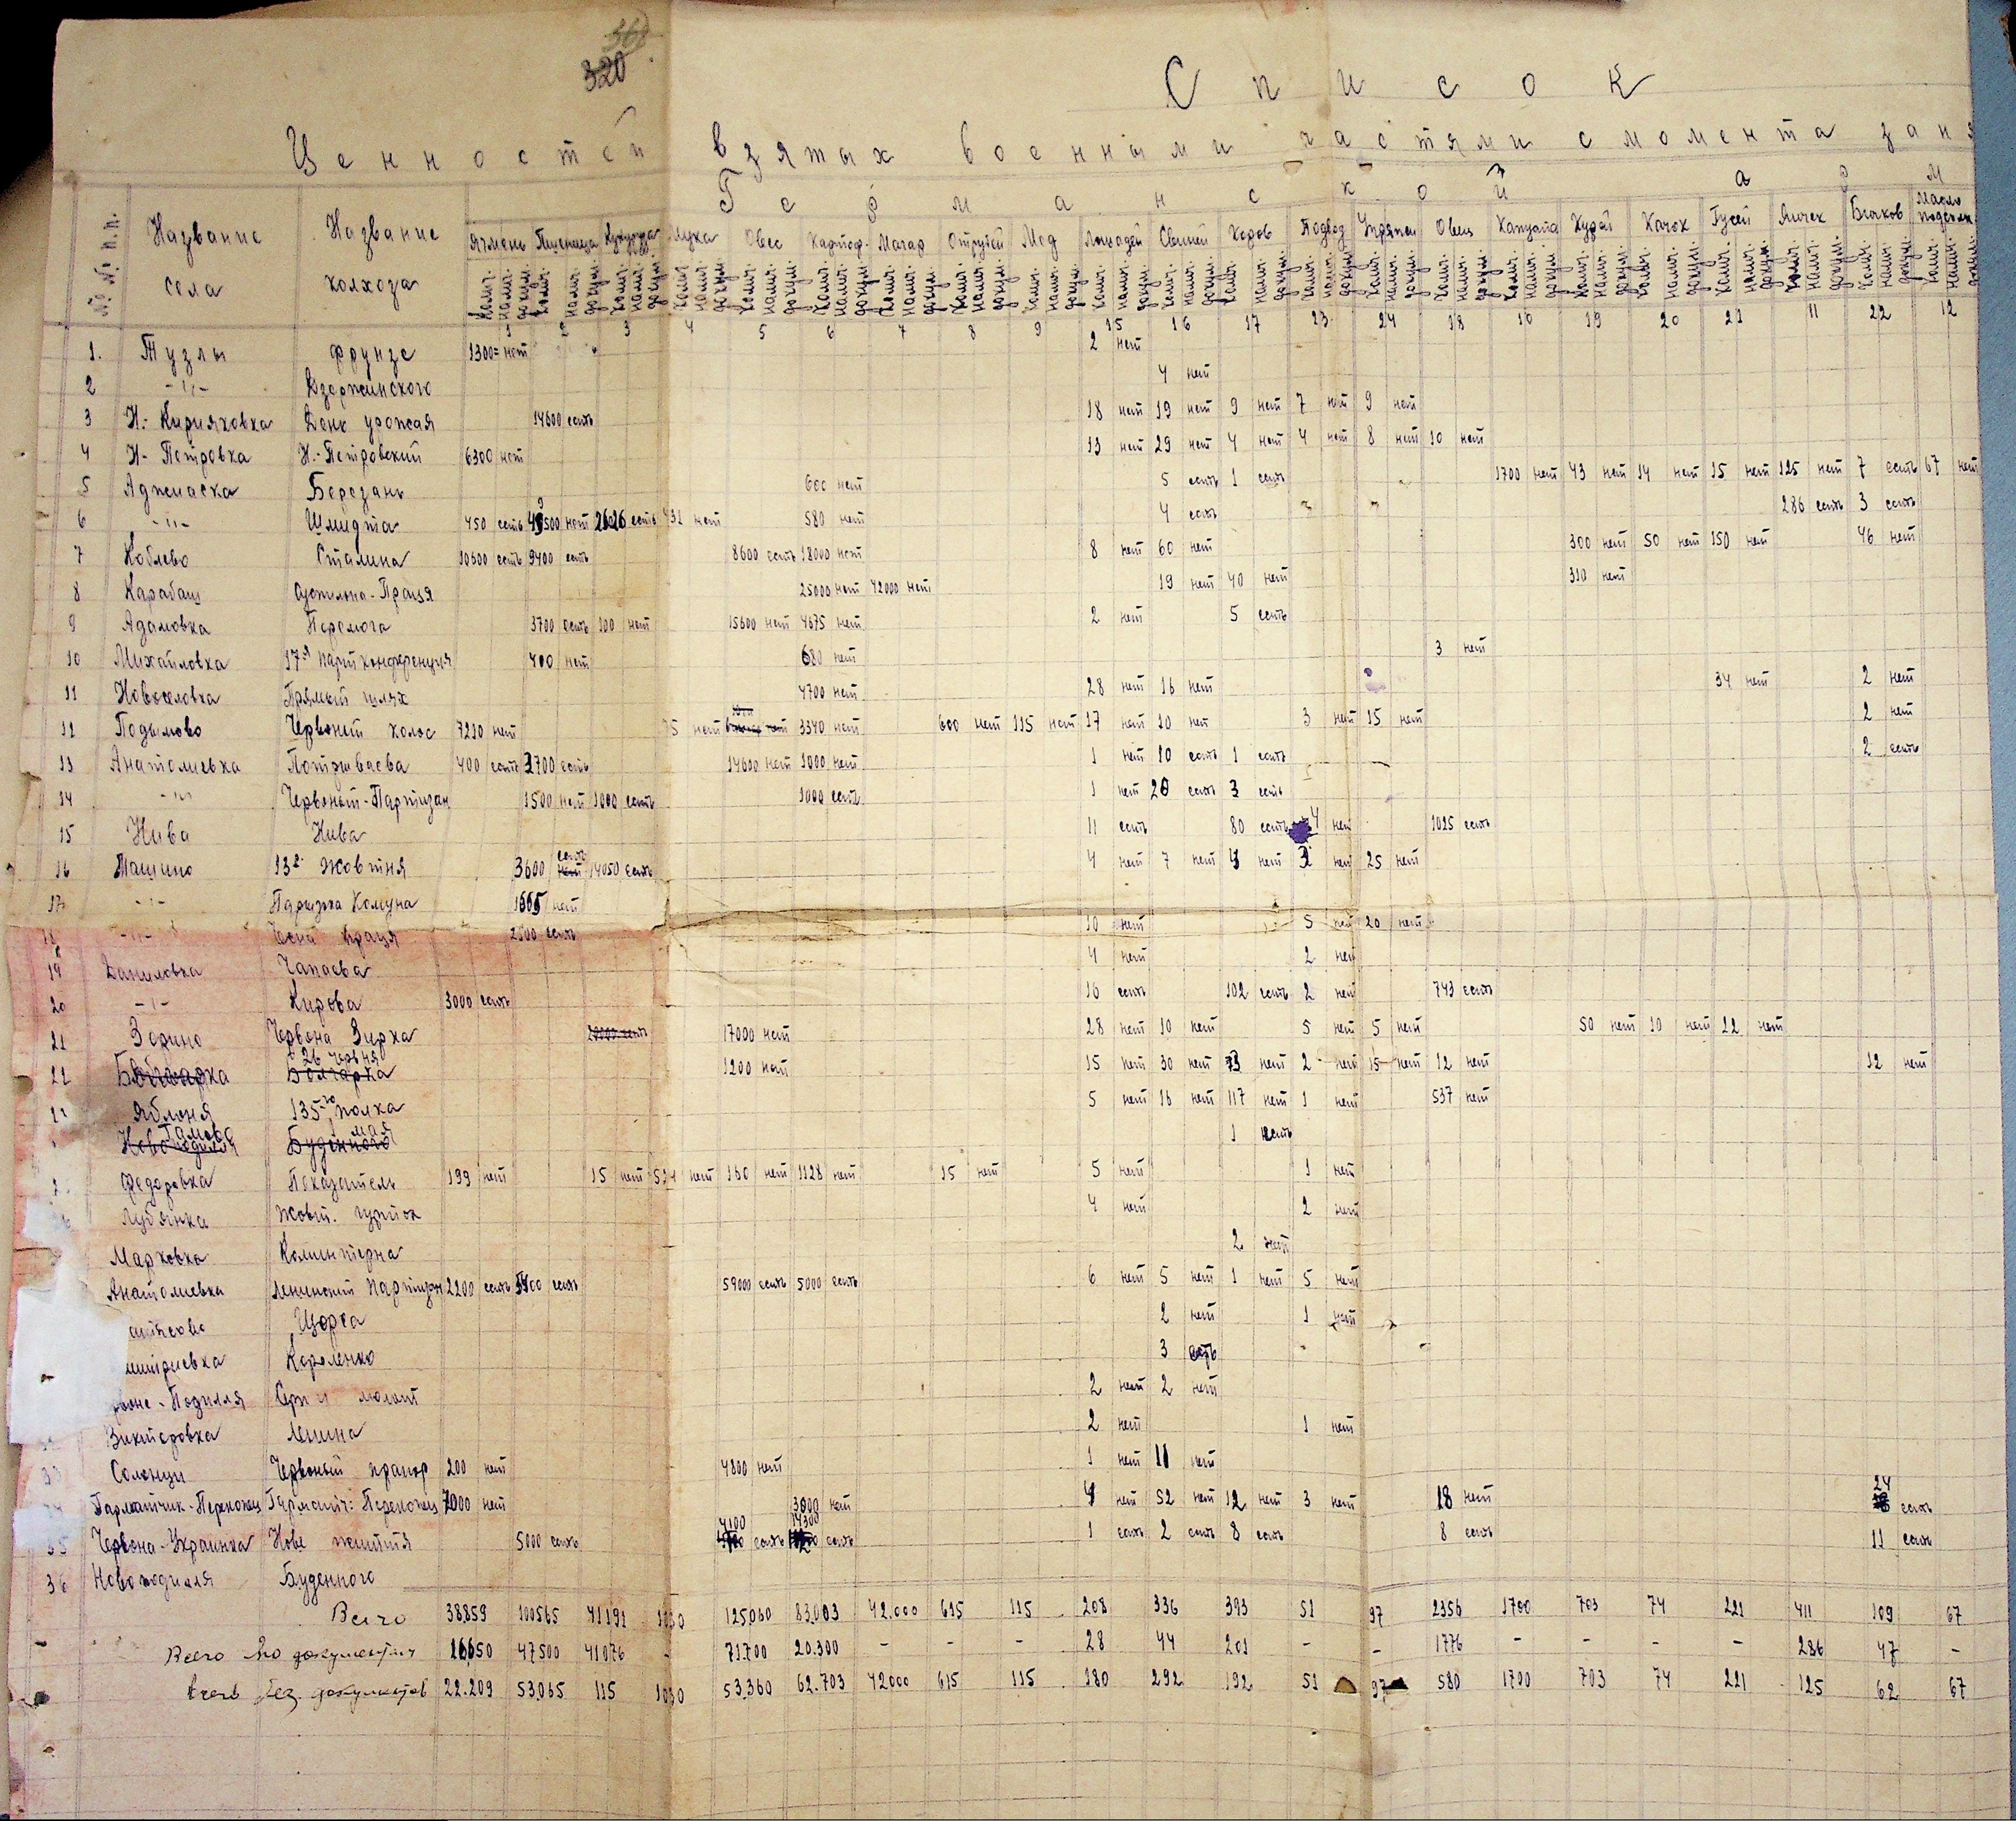 320
Список
Ценностей взятых военными частями с момента
Германской арм
№№ п.п. Название села Название колхоза Ячмень Пшеница Кукуруза Мука Овес Картоф. Магар Отрубей Мед Лошадей Свиней Коров Подвод Упряжи Овец Капуста Курей Качок Гусей Яичек Бычков Масло подсолн.
1 2 3 4 5 6 7 8 9 15 16 17 23 24 18 10 19 20 21 11 22 12
1. Тузлы Фрунзе 1300= нет 2 нет
2 -"- Дзержинского 4 нет
3 Н.- Кирияковка День урожая 14600 есть 18 нет 19 нет 9 нет 7 нет 9 нет
4 Н- Петровка Н.-Петровский 6300 нет 13 нет 29 нет 4 нет 4 нет 8 нет 10 нет
5 Аджиаска Березань 600 нет 5 есть 1 есть 1700 нет 43 нет 14 нет 15 нет 125 нет 7 есть 67 нет
6 -"- Шмидта 450 есть нет 2626 есть 431 нет 580 нет 4 есть 286 есть 3 есть
7 Коблево Сталина 10600 есть 9400 есть 8600 есть 18000 нет 8 нет 60 нет 300 нет 50 нет 150 нет 46 нет
8 Карабаш Спильна-Праця 25000 нет 42000 нет 19 нет 40 нет 310 нет
9 Адамовка Перемога 3700 есть 100 нет 15600 нет 4675 нет 2 нет 5 есть
10 Михайловка 17я партконференция 400 нет 680 нет 3 нет
11 Новоселовка Прямый шлях 4700 нет 28 нет 16 нет 34 нет 2 нет
12 Подымово Червоный колос 7210 нет 75 нет 3340 нет 600 нет 115 нет 17 нет 10 нет 3 нет 15 нет 2 нет
13 Анатолиевка 400 есть 2700 есть 14600 нет 1000 нет 1 нет 10 есть 1 есть 2 есть
14 -"- Червоный-Партизан 1500 нет 1000 есть 1000 есть 1 нет 20 есть 3 есть
15 Нива Нива 11 есть 80 есть 4 нет 1025 есть
16 Ташино 13р. Жовтня 3600 есть 14050 есть 4 нет 7 нет 4 нет 2 нет 25 нет
17 -"- Парижка Комуна 1665 нет
18 -"- Чесна праця 2600 есть 10 нет 5 нет 20 нет
19 Даниловка Чапаева 4 нет 2 нет
20 -"- Кирова 3000 есть 16 есть 102 есть 2 нет 743 есть
21 Зорино Червона Зирка 20000 есть 17000 нет 28 нет 10 нет 5 нет 5 нет 50 нет 10 нет 22 нет
22 Болгарка 26 червня Болгарка 1200 нет 15 нет 30 нет 73 нет 2 нет 15 нет 12 нет 12 нет
Яблоня 135го полка 5 нет 16 нет 117 нет 1 нет 537 нет
Новоподилля 1 мая Буденного 1 есть
Федоровка Показатель 199 нет 15 нет 524 нет 160 нет 1128 нет 15 нет 5 нет 1 нет
Лубянка Жовт. гурток 4 нет 2 нет
Марковка Коминтерна 2 нет
Анатолиевка Ленинский партизан 2200 есть есть 59000 есть 5000 есть 6 нет 5 нет 1 нет 5 нет
Щорса 2 нет 1 нет
митриевка Короленко 3 есть
воне-Подилля Серп и молот 2 нет 2 нет
Викторовка Ленина 2 нет 1 нет
33 Солонцы Червоный прапор 200 нет 4800 нет 1 нет 11 нет
Тармаtчик-Перекопец Тарматч: Перекопец 7000 нет 3800 нет 4 нет 52 нет 12 нет 3 нет 18 нет 24 есть
35 Червона-Украинка Нове життя 5000 есть 4100 есть 14300 есть 1 есть 2 есть 8 есть 8 есть 11 есть
36 Новоподилля Буденного
Всего 38859 100565 41191 1030 125060 83.003 42.000 615 115 208 336 393 51 97 2356 1700 703 74 221 411 109 67
Всего по документам 16650 47500 41076 - 71700 20.300 - - - 28 44 201 - - 1776 - - - - 286 47 -
Всего без документов 22.209 53.065 115 1030 53.360 62.703 42000 615 115 180 292 192 51 97 580 1700 703 74 221 125 62 67